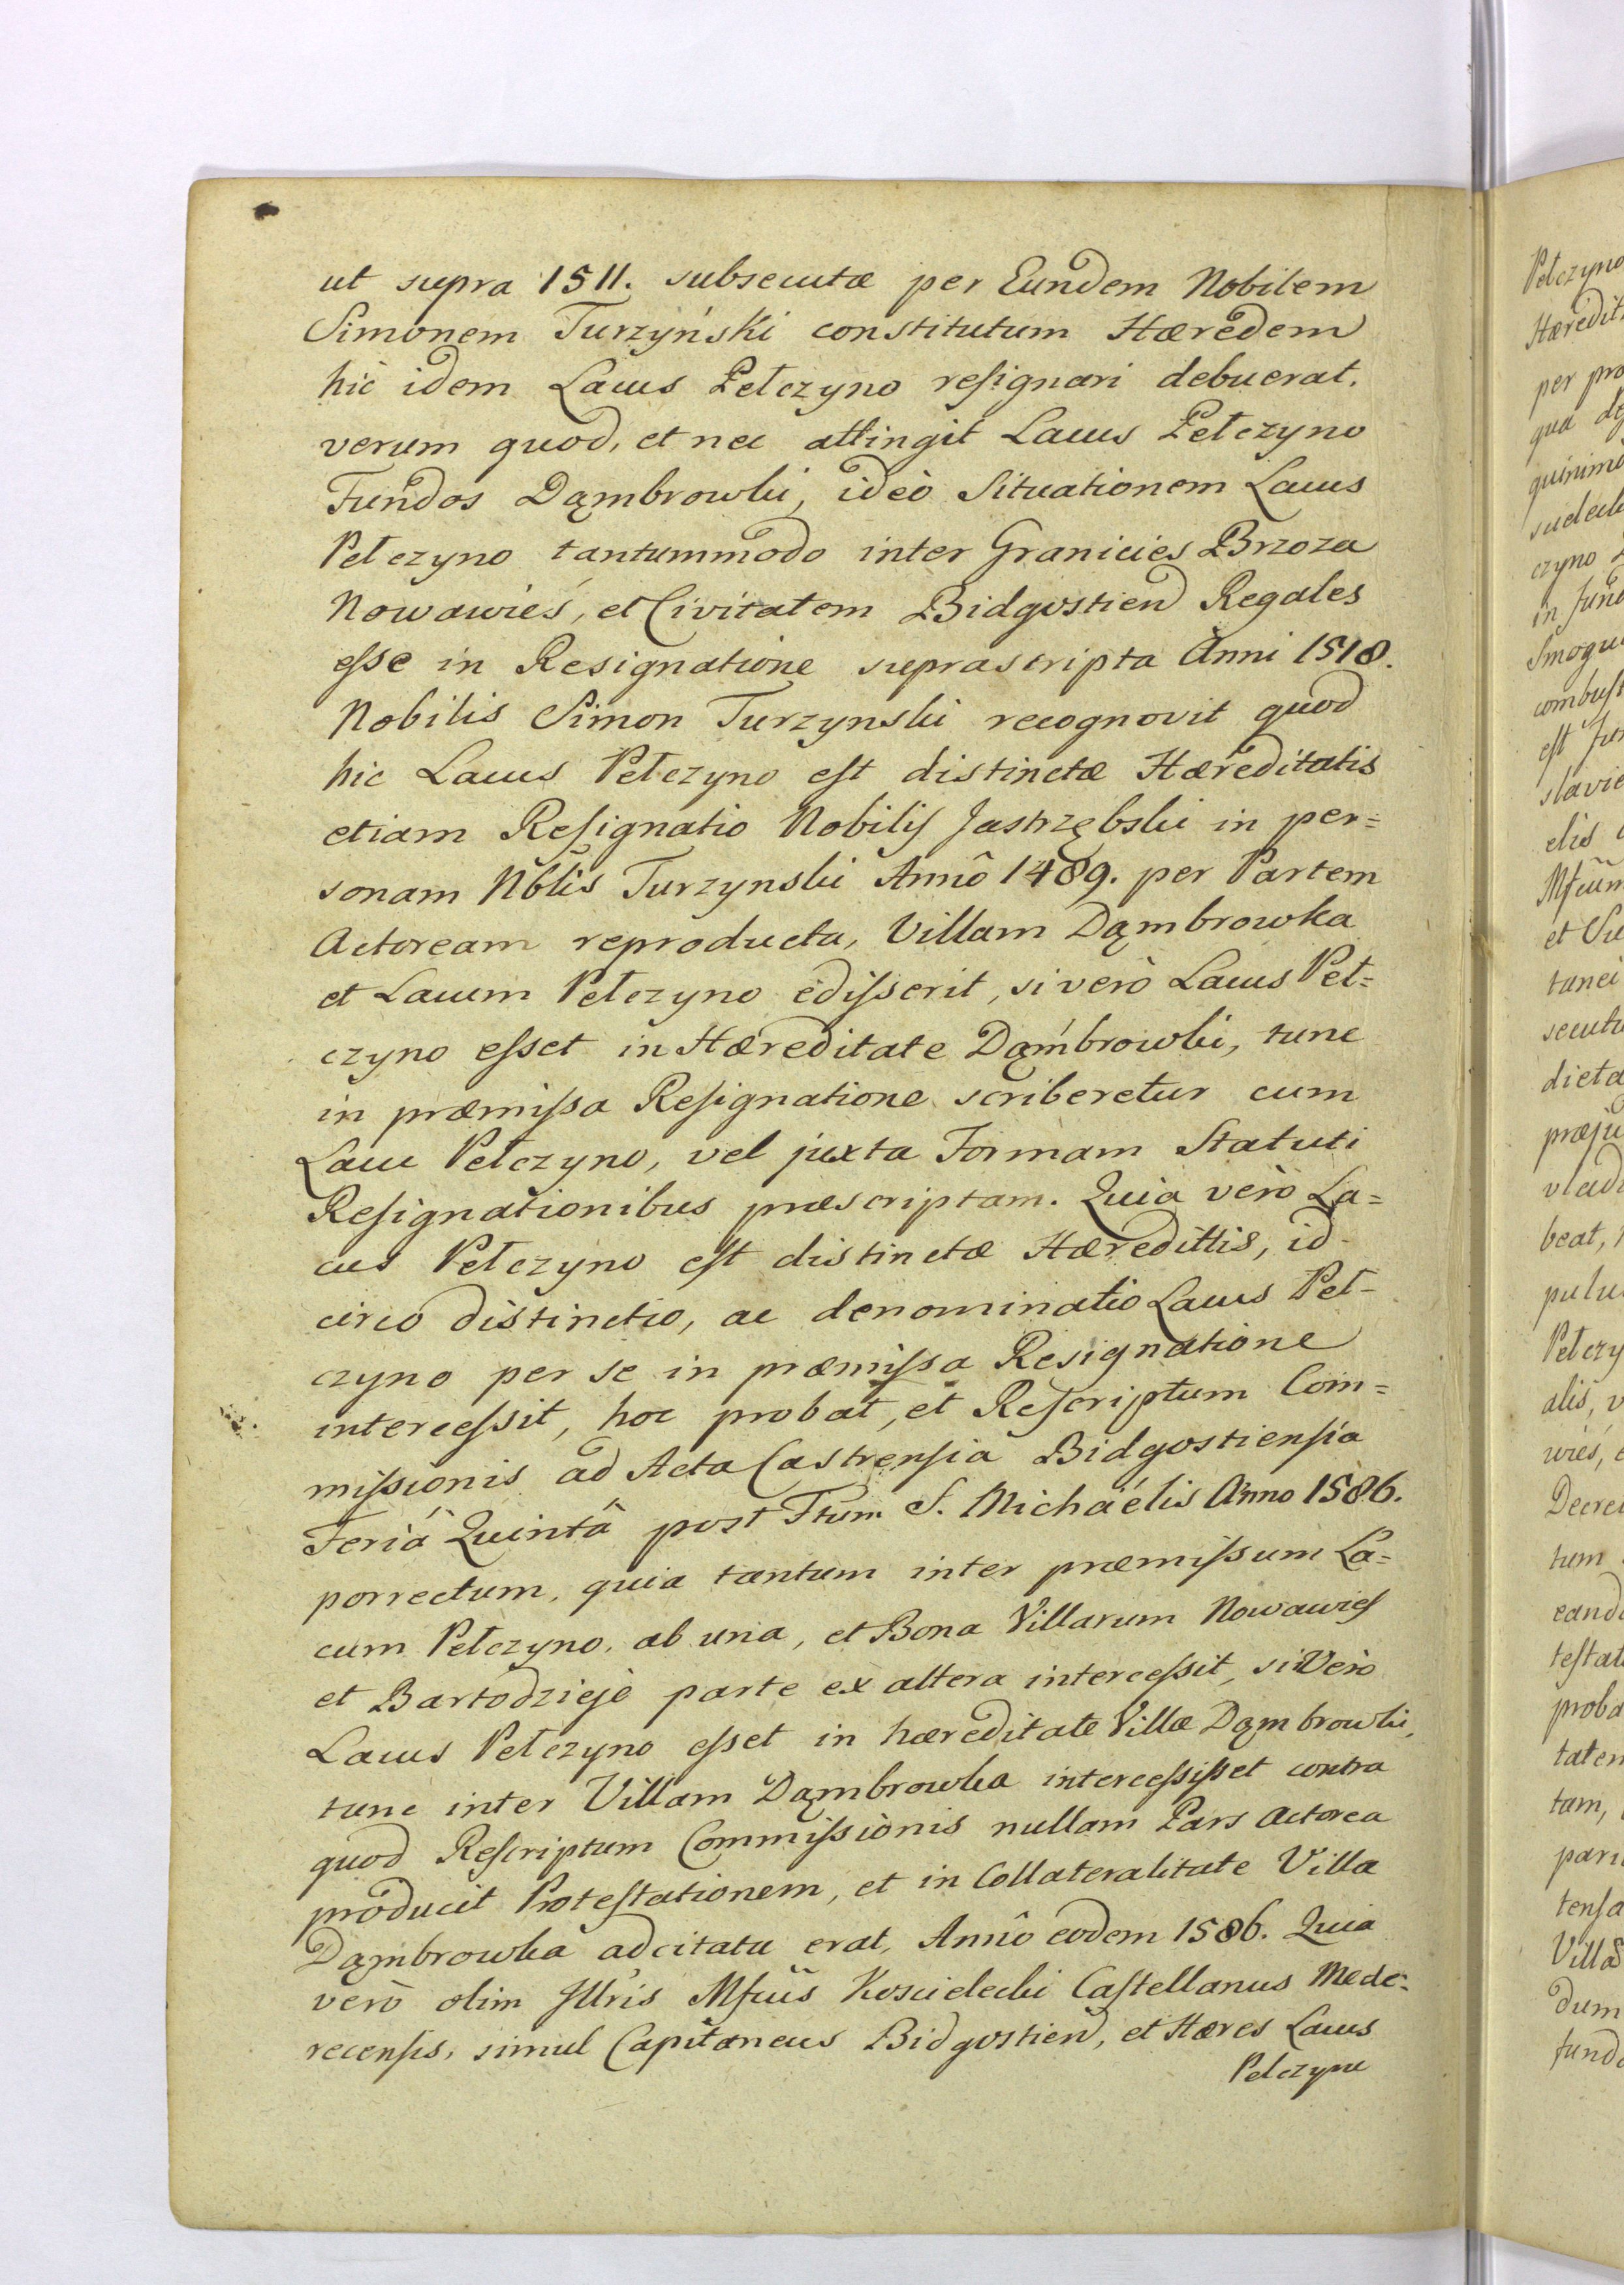 ut supra 1511. subsecutæ per Eundem Nobilem
Simonem Turzyński constitutum Hæredem
hic idem Lacus Pełczyno resignari debuerat.
verum quod, et nec attingit Lacus Pełczyno
Fundos Dąmbrowki, ideò Situationem Lacus
Pełczyno tantummodo inter Granicies Brzoza
Nowawieś, et Civitatem Bidgostien Regales
esse in Resignatione suprascripta Anni 1518.
Nobilis Simon Turzynski recognovit quod
hic Lacus Pełczyno est distinctæ Hæreditatis
etiam Resignatio Nobilis Jastrzębski in per=
sonam Nblis Turzynski Annô 1489. per Partem
Actoream reproducta, Villam Dąmbrowka
et Lacum Pełczyno edisserit, si verò Lacus Peł=
czyno esset in Hæreditate Dąmbrowki, tunc
in præmissa Resignatione scriberetur cum
Lacu Pełczyno, vel juxta Formam Statuti
Resignationibus præscriptam. Quia verò La=
cus Pełczyno est distinctæ Hæredittis, id-
circo distinctio, ac denominatio Lacus Peł-
czyno per se in præmissa Resignatione
intercessit, hoc probat, et Rescriptum Com=
missionis ad Acta Castrensia Bidgostiensia
Feriâ Quintâ post Ftum S. Michaélis Anno 1586.
porrectum, quia tantum inter præmissum La=
cum Pełczyno, ab una, et Bona Villarum Nowawies
et Bartodzieje parte ex altera intercessit, si Verò
Lacus Pełczyno esset in hæreditate Villæ Dąmbrowki,
tunc inter Villam Dąmbrowka intercessisset contra
quod Rescriptum Commissionis nullam Pars Actorea
producit Protestationem, et in Collateralitate Villa
Dąmbrowka adcitata erat, Annô eodem 1586. Quia
verò olim Jllris Mfcus Koscielecki Castellanus Mede=
recensis, simul Capitaneus Bidgostien, et Hæres Lacus
Pelczyno
Pełczyno
Hæredit
per pro
qua
quinimo
czyno
in fund
Smogu
combust
est
slavie
elis
Mfcum
et
tanei
secuta
dicta
præju
vlad
beat,
Pełczy
alis, v
wieś, e
Decre
tum
eand
testat
proba
taten
tam,
pari
tensa
Villa
dum
fund